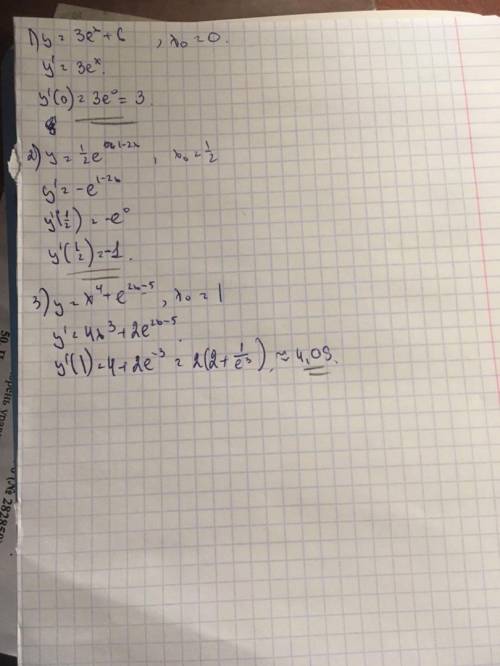 1) y = 3e^x + 6 , x₀ = 0.
y' = 3e^x.
y'(0) = 3e⁰ = 3.
2) y = ½e^(1-2x) , x₀ = ½
y' = -e^(1-2x)
y'(½) = -e⁰
y'(½) = -1.
3) y = x⁴ + e^(2x-5) , x₀ = 1
y' = 4x³ + 2e^(2x-5).
y'(1) = 4 + 2e^(-3) = 2(2 + 1/e³) ≈ 4,09.